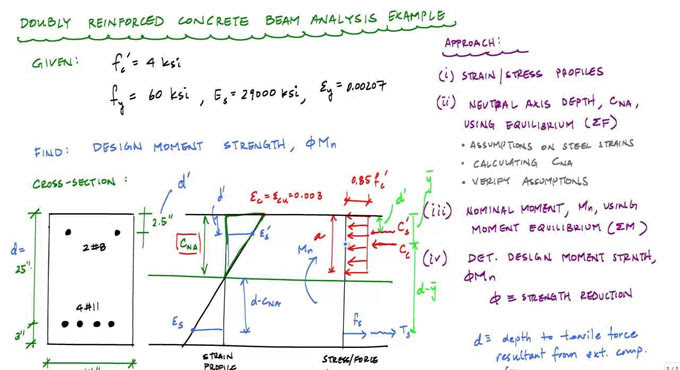 DOUBLY REINFORCED CONCRETE BEAM ANALYSIS EXAMPLE
GIVEN: f'c = 4 ksi
fy = 60 ksi, Es = 29000 ksi, εy = 0.00207
FIND: DESIGN MOMENT STRENGTH, φMn
CROSS-SECTION:
d'
2.5"
2#8
d=
25"
4#11
3"
d'
εc = εcu = 0.003
CNA
εs'
d-CNA
εs
STRAIN
PROFILE
0.85 f'c
a
Mn
d'
ȳ
Cs'
Cc
d-ȳ
fs
Ts
STRESS/FORCE
APPROACH:
(i) STRAIN/STRESS PROFILES
(ii) NEUTRAL AXIS DEPTH, CNA,
USING EQUILIBRIUM (ΣF)
• ASSUMPTIONS ON STEEL STRAINS
• CALCULATING CNA
• VERIFY ASSUMPTIONS
(iii) NOMINAL MOMENT, Mn, USING
MOMENT EQUILIBRIUM (ΣM)
(iv) DET. DESIGN MOMENT STRNTH,
φMn
φ ≡ STRENGTH REDUCTION
d ≡ depth to tensile force
resultant from ext. comp.